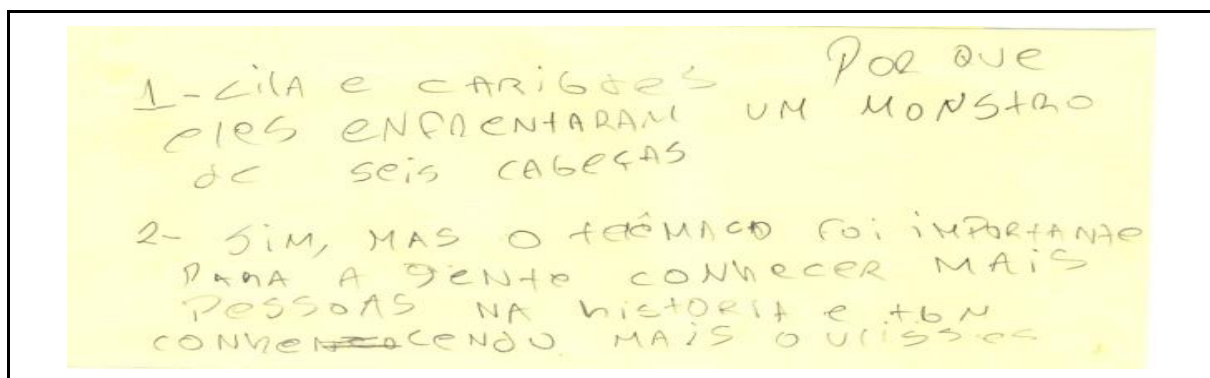 1- CilA e CARIBdeS POR QUE
eles ENFRENTARAM UM MONSTRO
de seis CABEÇAS
2- SiM, MAS O telêMACO foi iMPORTANte
PARA A geNte CONheceR MAiS
PessOAS NA histORiA e tbM
CONheceNdO MAiS O Ulisses